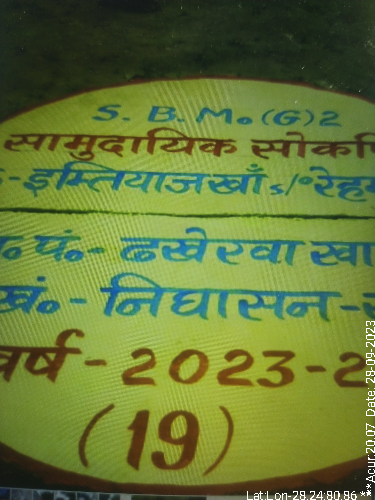 S. B. M. (G) 2
सामुदायिक सोकपि
-इम्तियाजखाँ s/० रेहम
.पं०- ढखेरवा खा
खं० - निघासन-
वर्ष - 2023-2
(19)
Lat:Lon-28.24:80.86 **
**Acur:20.07 Date: 28-09-2023